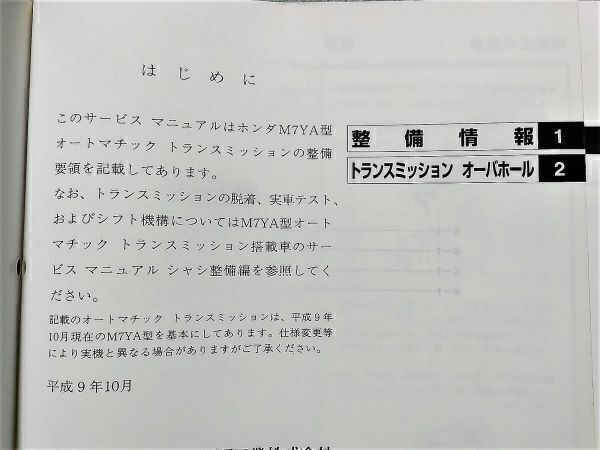 はじめに
このサービス マニュアルはホンダM7YA型
オートマチック トランスミッションの整備
要領を記載してあります。
なお、トランスミッションの脱着、実車テスト、
およびシフト機構についてはM7YA型オート
マチック トランスミッション搭載車のサー
ビス マニュアル シャシ整備編を参照してく
ださい。
記載のオートマチック トランスミッションは、平成9年
10月現在のM7YA型を基本にしてあります。仕様変更等
により実機と異なる場合がありますがご了承ください。
平成9年10月
整備情報 1
トランスミッション オーバホール 2